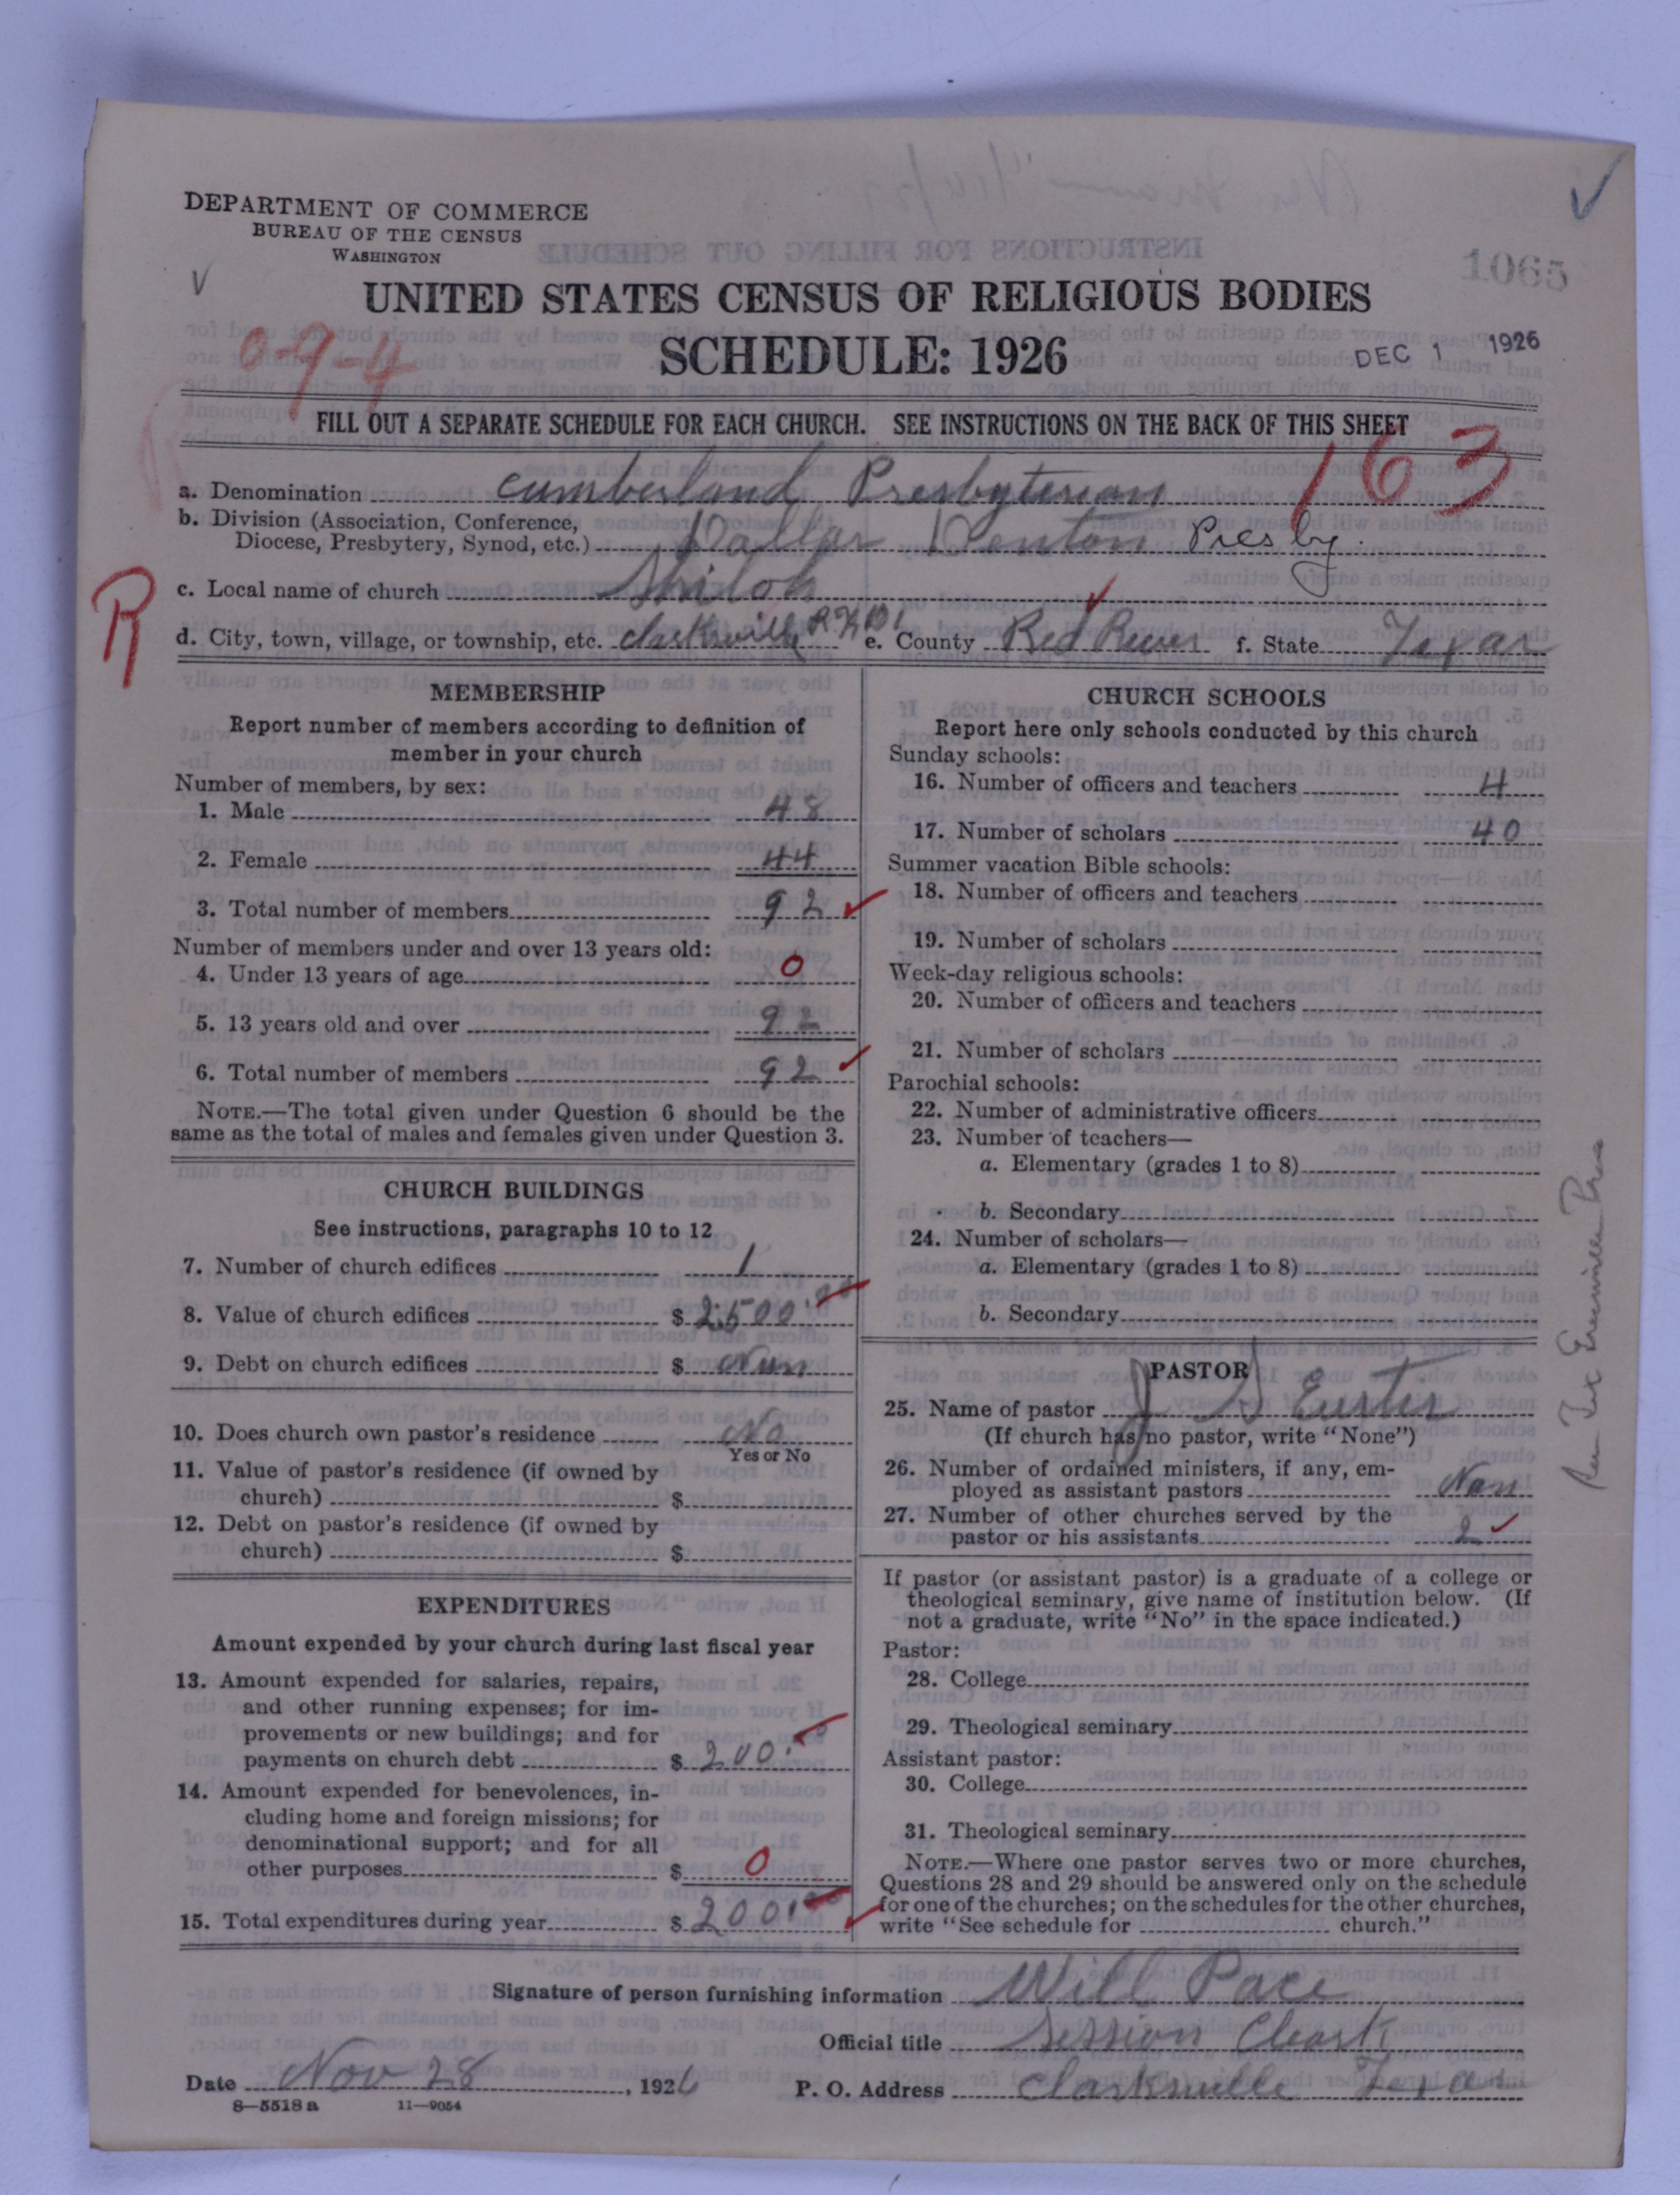 DEPARTMENT OF COMMERCE
BUREAU OF THE CENSUS
WASHINGTON
1065
UNITED STATES CENSUS OF RELIGIOUS BODIES
SCHEDULE: 1926
DEC 1 1926
FILL OUT A SEPARATE SCHEDULE FOR EACH CHURCH. SEE INSTRUCTIONS ON THE BACK OF THIS SHEET
163
a. Denomination Cumberland Presbyterian
b. Division (Association, Conference,
Diocese, Presbytery, Synod, etc.) Dallas Denton Presby.
R
c. Local name of church Shiloh
d. City, town, village, or township, etc. Clarksville e. County Red River f. State Texas
MEMBERSHIP
Report number of members according to definition of
member in your church
Number of members, by sex:
1. Male 48
2. Female 44
3. Total number of members 92
Number of members under and over 13 years old:
4. Under 13 years of age 0
5. 13 years old and over 92
6. Total number of members 92
NOTE.—The total given under Question 6 should be the
same as the total of males and females given under Question 3.
CHURCH BUILDINGS
See instructions, paragraphs 10 to 12
7. Number of church edifices 1
8. Value of church edifices $ 2500.00
9. Debt on church edifices $ Nun
10. Does church own pastor's residence No
Yes or No
11. Value of pastor's residence (if owned by
church) $
12. Debt on pastor's residence (if owned by
church) $
EXPENDITURES
Amount expended by your church during last fiscal year
13. Amount expended for salaries, repairs,
and other running expenses; for im-
provements or new buildings; and for
payments on church debt $ 200.00
14. Amount expended for benevolences, in-
cluding home and foreign missions; for
denominational support; and for all
other purposes $ 0
15. Total expenditures during year $ 200.00
CHURCH SCHOOLS
Report here only schools conducted by this church
Sunday schools:
16. Number of officers and teachers 4
17. Number of scholars 40
Summer vacation Bible schools:
18. Number of officers and teachers
19. Number of scholars
Week-day religious schools:
20. Number of officers and teachers
21. Number of scholars
Parochial schools:
22. Number of administrative officers
23. Number of teachers—
a. Elementary (grades 1 to 8)
b. Secondary
24. Number of scholars—
a. Elementary (grades 1 to 8)
b. Secondary
PASTOR
25. Name of pastor J S Eustis
(If church has no pastor, write "None")
26. Number of ordained ministers, if any, em-
ployed as assistant pastors Non
27. Number of other churches served by the
pastor or his assistants 2
If pastor (or assistant pastor) is a graduate of a college or
theological seminary, give name of institution below. (If
not a graduate, write "No" in the space indicated.)
Pastor:
28. College
29. Theological seminary
Assistant pastor:
30. College
31. Theological seminary
NOTE.—Where one pastor serves two or more churches,
Questions 28 and 29 should be answered only on the schedule
for one of the churches; on the schedules for the other churches,
write "See schedule for church."
Signature of person furnishing information Will Pace
Official title Session Cleark
Date Nov 28, 1926 P. O. Address Clarksville Texas
8—5518 a 11—9054